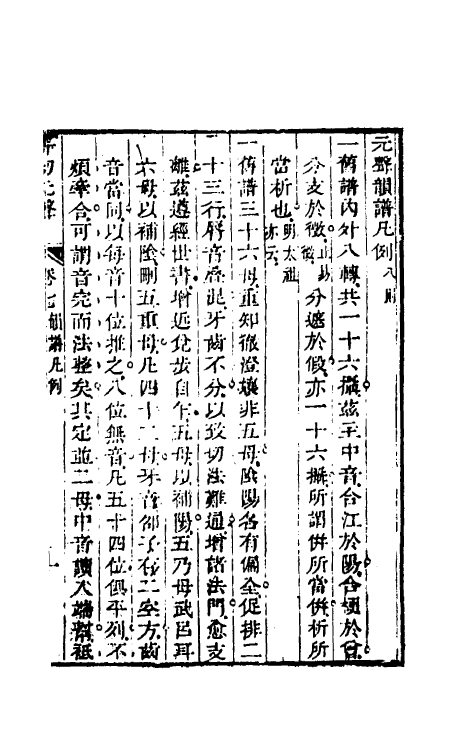 元聲韻譜凡例八則
一舊譜內外八轉共一十六攝茲主中音合江於陽合頌於宮
分支於徵徵止攝分遮於假亦一十六攝所謂併所當併析所
當析也明太祖亦云
一舊譜三十六母重知徹澄孃非五母陰陽各有偏全促排二
十三行脣音疊混牙齒不分以致切法難通增諸法門愈支
離茲遵經世書增近兌步自午五母以補陽五乃母武呂耳
六母以補陰刪五重母凡四十二母牙音
音當同以每音十位推之八位無音凡五十四位側平列不
煩牽合可謂音完而法整矣其定並二母中音讀入端幫祗
卷七韻譜凡例